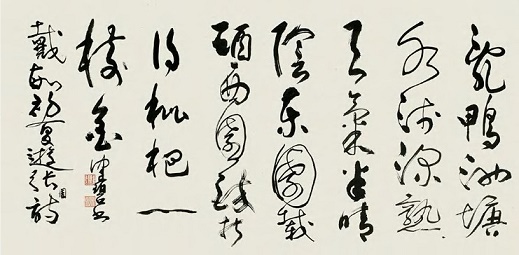 乳鴨池塘
水浅深熟
天氣半晴
陰東園載
酒西園醉摘
枇杷一
樹金
戴敏初夏遊張園詩